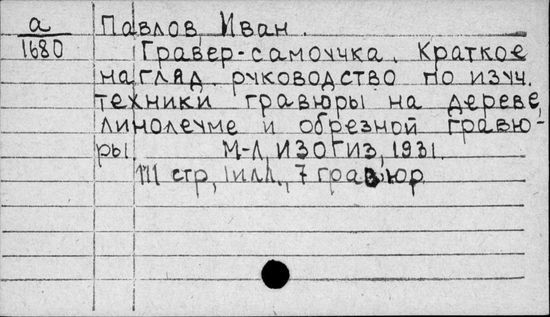 а
1680
Павлов, Иван.
Гравер-самоучка. Краткое
нагляд. руководство по изуч.
техники гравюры на дереве,
линолеуме и обрезной гравю-
ры. М-Л, ИЗОГИЗ, 1931.
111 стр, 1 илл., 7 гравюр